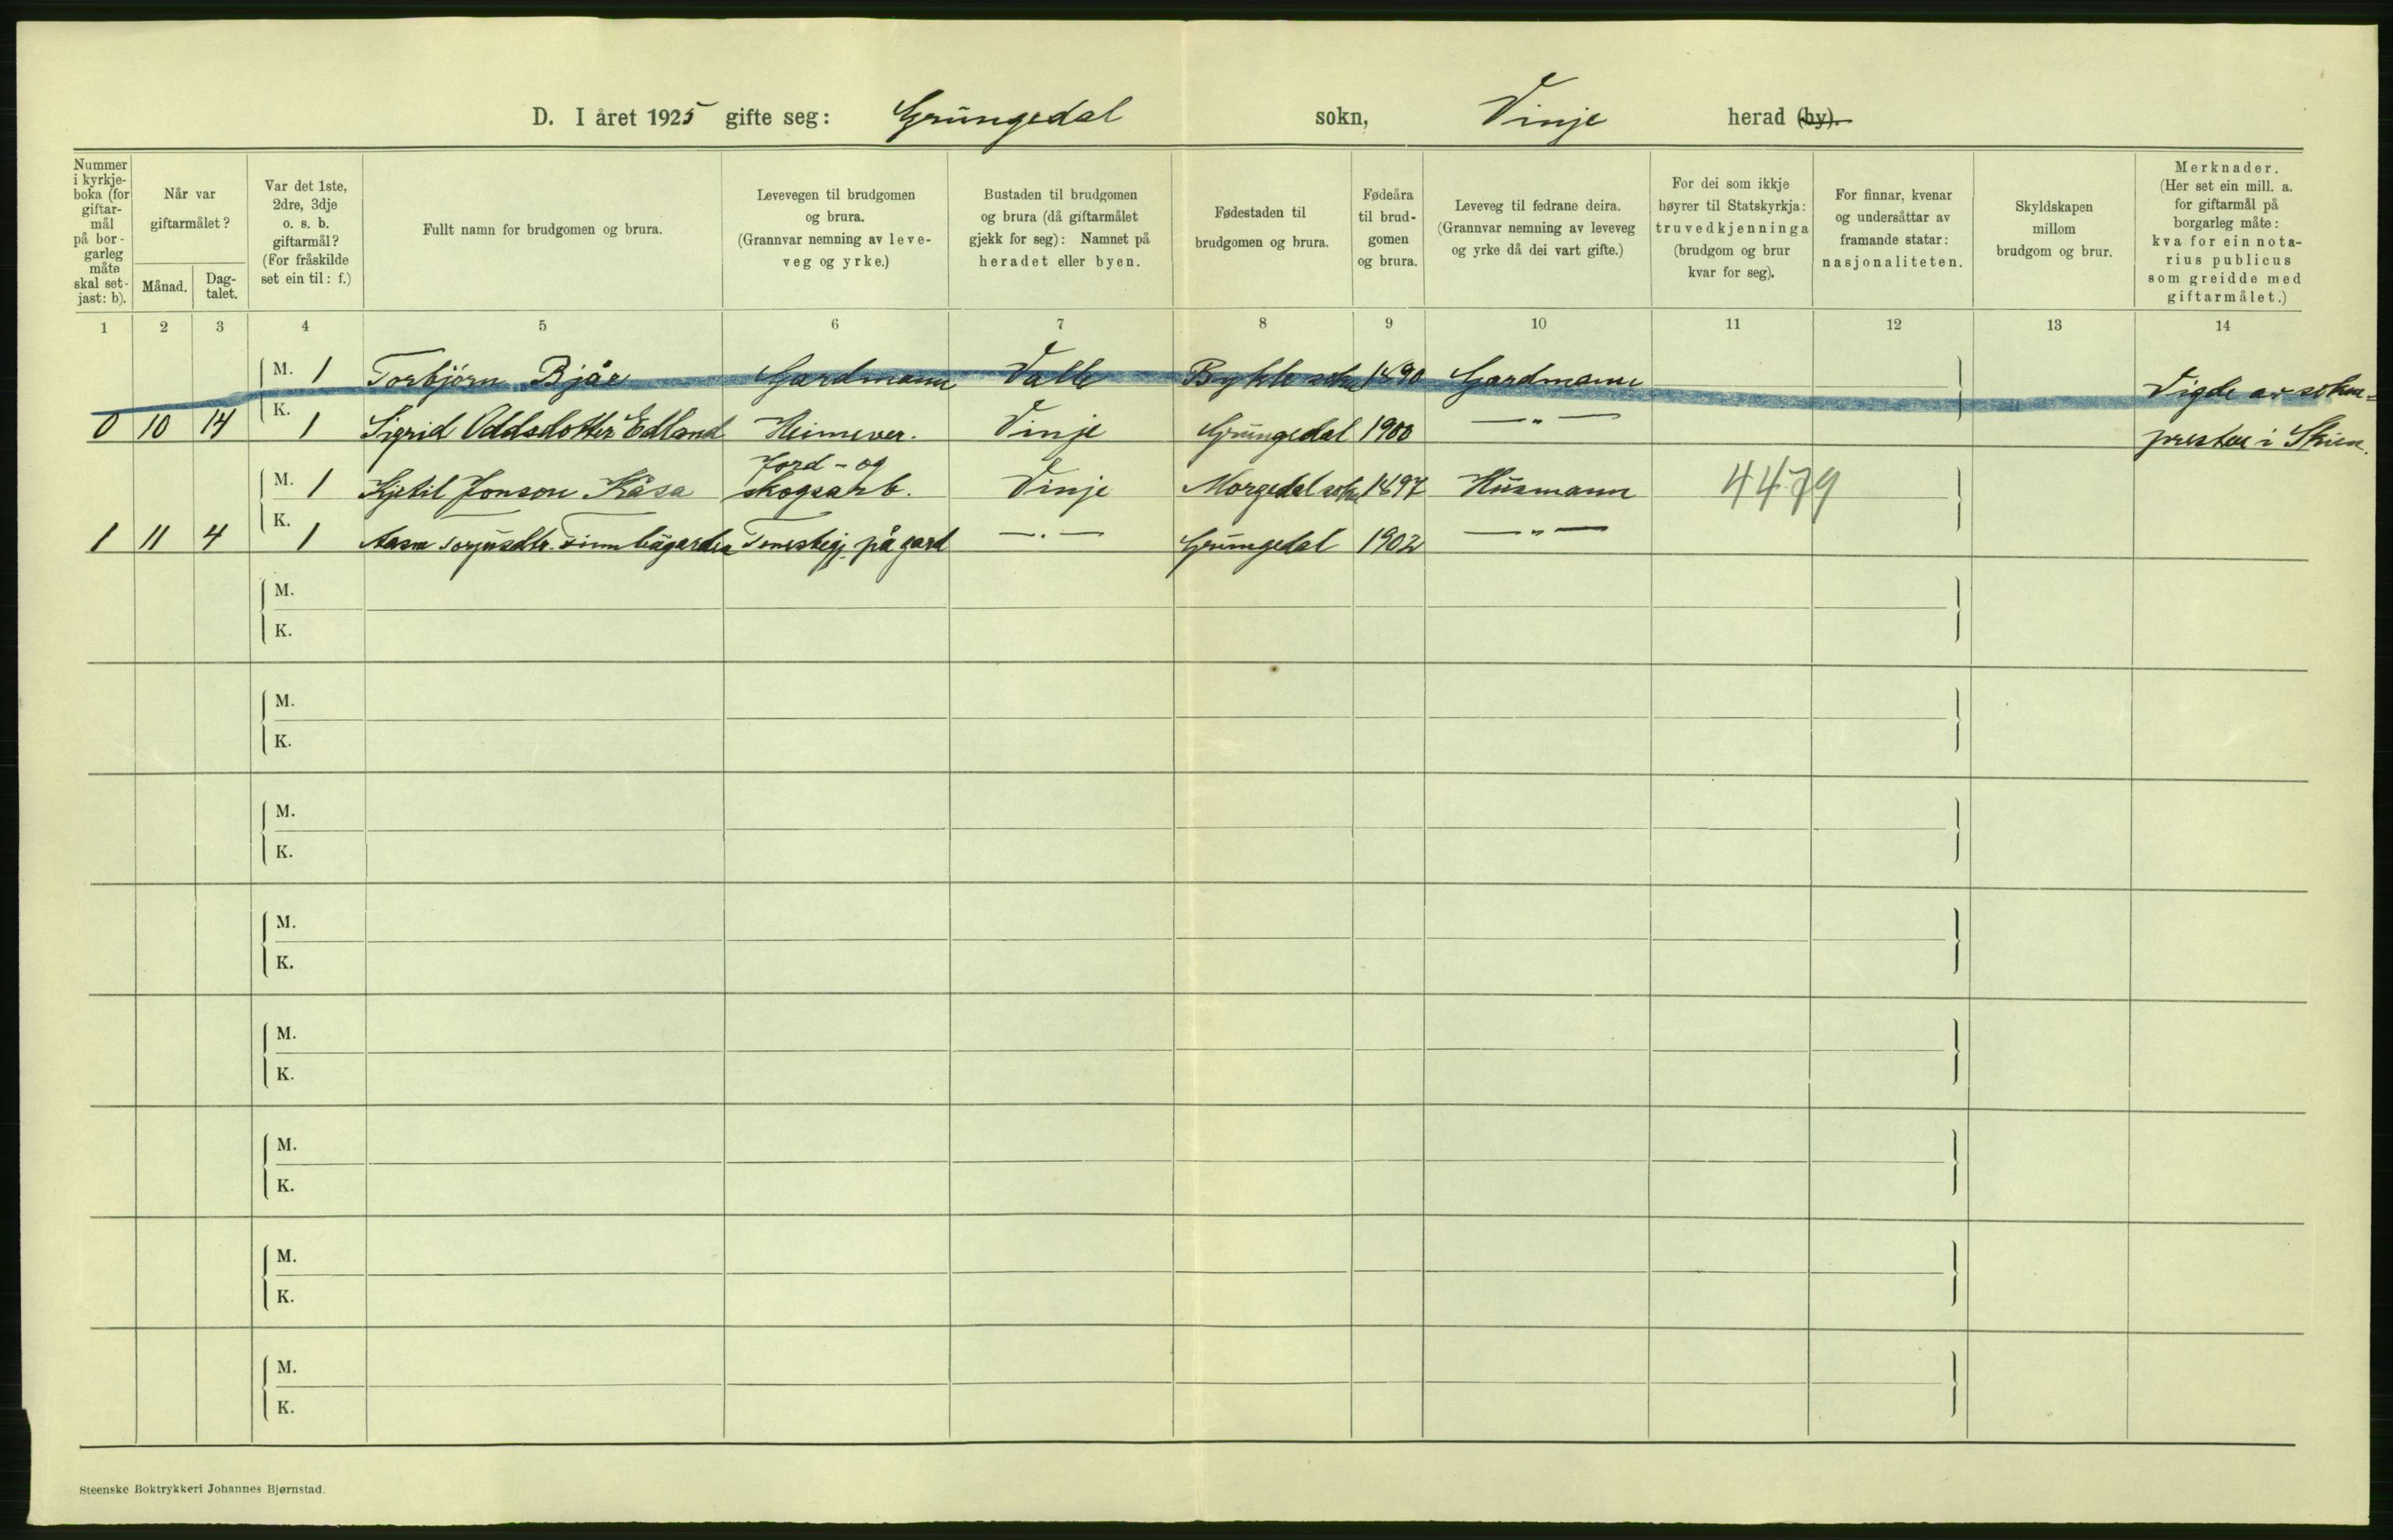 D. I året 1925 gifte seg: Grungedal sokn, Vinje herad (by).
Nummer i kyrkje-boka (for giftar-mål på bor-garleg måte skal set-jast: b).
Når var giftarmålet?
Månad.
Dag-talet.
Var det 1ste, 2dre, 3dje o. s. b. giftarmål? (For fråskilde set ein til: f.)
Fullt namn for brudgomen og brura.
Levevegen til brudgomen og brura. (Grannvar nemning av leve-veg og yrke.)
Bustaden til brudgomen og brura (då giftarmålet gjekk for seg): Namnet på heradet eller byen.
Fødestaden til brudgomen og brura.
Fødeåra til brud-gomen og brura.
Leveveg til fedrane deira. (Grannvar nemning av leveveg og yrke då dei vart gifte.)
For dei som ikkje høyrer til Statskyrkja: truvedkjenninga (brudgom og brur kvar for seg).
For finnar, kvenar og undersåttar av framande statar: nasjonaliteten.
Skyldskapen millom brudgom og brur.
Merknader. (Her set ein mill. a. for giftarmål på borgarleg måte: kva for ein nota-rius publicus som greidde med giftarmålet.)
1 2 3 4 5 6 7 8 9 10 11 12 13 14
M. 1 Torbjörn Bjåe Gardmann Valle Bykle sokn 1890 Gardmann Vigde av sokne-
0 10 14 K. 1 Sigrid Oddsdotter Edland Heimever. Vinje Grungedal 1900 —"— presten i Skien.
M. 1 Kjetil Jonson Kåsa Jord- og skogsarb. Vinje Morgedal sokn 1897 Husmann 4479
1 11 4 K. 1 Aasne Torjusdtr. Tenestegj. på gard —"— Grungedal 1902 —"—
M.
K.
M.
K.
M.
K.
M.
K.
M.
K.
M.
K.
M.
K.
M.
K.
Steenske Boktrykkeri Johannes Bjørnstad.